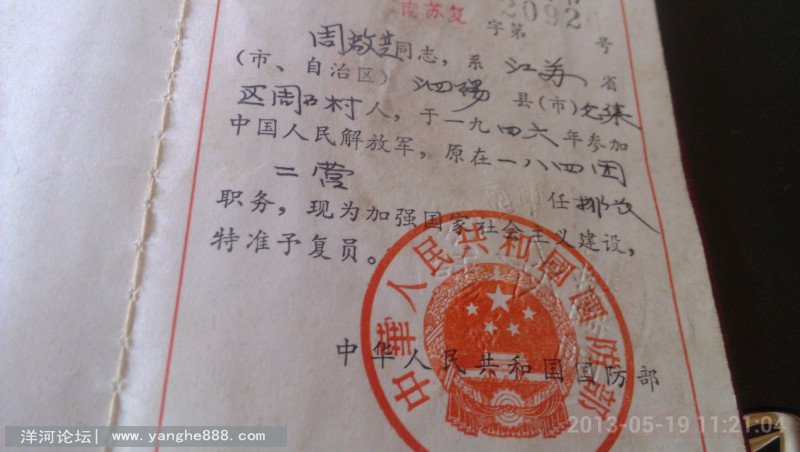 南苏复
2092
字第 号
周敬芝同志，系 江苏 省
（市、自治区） 泗杨 县（市）
区周 村人，于一九四六年参加
中国人民解放军，原在一八四团
二营 任
职务，现为加强国家社会主义建设，
特准予复员。
中华人民共和国国防部
中華人民共和國國防部
2013-05-19 11:21:04
洋河论坛| www.yanghe888.com